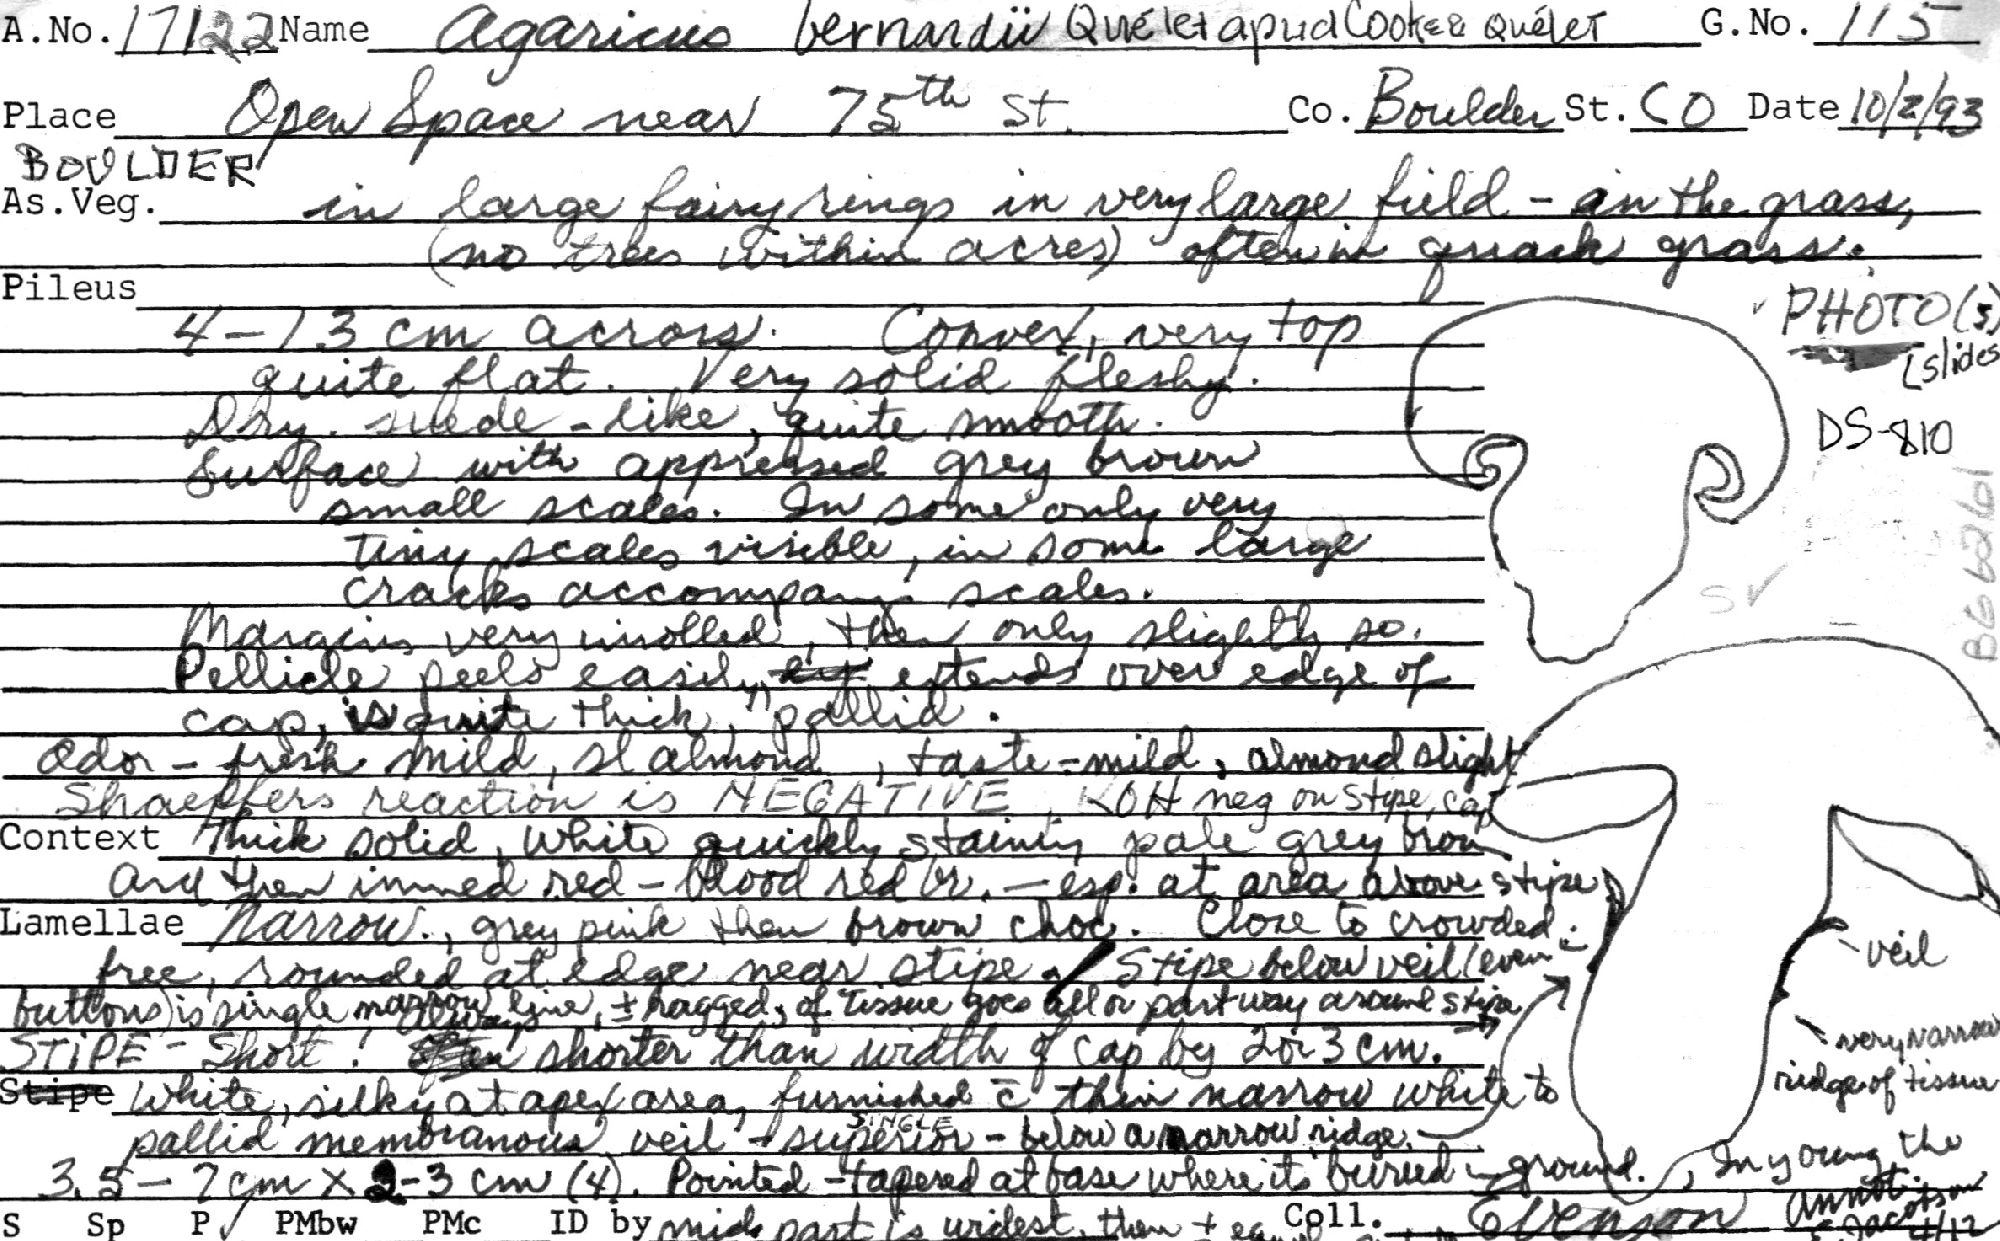 A.No. 17122 Name Agaricus bernardii Quélet apud Cooke & Quélet G.No. 115
Place Open Space near 75th St. Co. Boulder St. CO Date 10/2/93
BOULDER
As.Veg. in large fairy rings in very large field - in the grass,
(no trees within acres) often in quack grass.
Pileus
4-13 cm across. Convex, very top
quite flat. Very solid fleshy.
Dry. suede-like, quite smooth.
Surface with appressed grey brown
small scales. In some only very
tiny scales visible, in some large
cracks accompany scales.
Margins very inrolled, then only slightly so.
Pellicle peels easily, extends over edge of
cap, is quite thick, pallid.
Odor - fresh mild, sl almond, taste - mild, almond slight
Shaeffers reaction is NEGATIVE, KOH neg on stipe, cap
Context Thick solid, white quickly staining pale grey brown
and then immed red - blood red br. - esp. at area above stipe
Lamellae Narrow, grey pink then brown choc. Close to crowded.
free, rounded at edge near stipe. Stipe below veil (even in
buttons) is single narrow line, ± ragged, of tissue goes all or part way around stipe
STIPE - Short! always shorter than width of cap by 2 or 3 cm.
Stipe White, silky at apex area, furnished c̄ thin narrow white to
pallid membranous veil - SINGLE superior - below a narrow ridge.
3.5 - 7 cm x 2-3 cm (4). Pointed - tapered at base where its buried in ground. , In young the
S Sp P ✓ PMbw PMc ID by mid part is widest, then ± Coll. Evenson
Annot. E. Jacobson 4/12
PHOTO(s)
(slides
DS-810
S ✓
BG6261
veil
very narrow
ridge of tissue